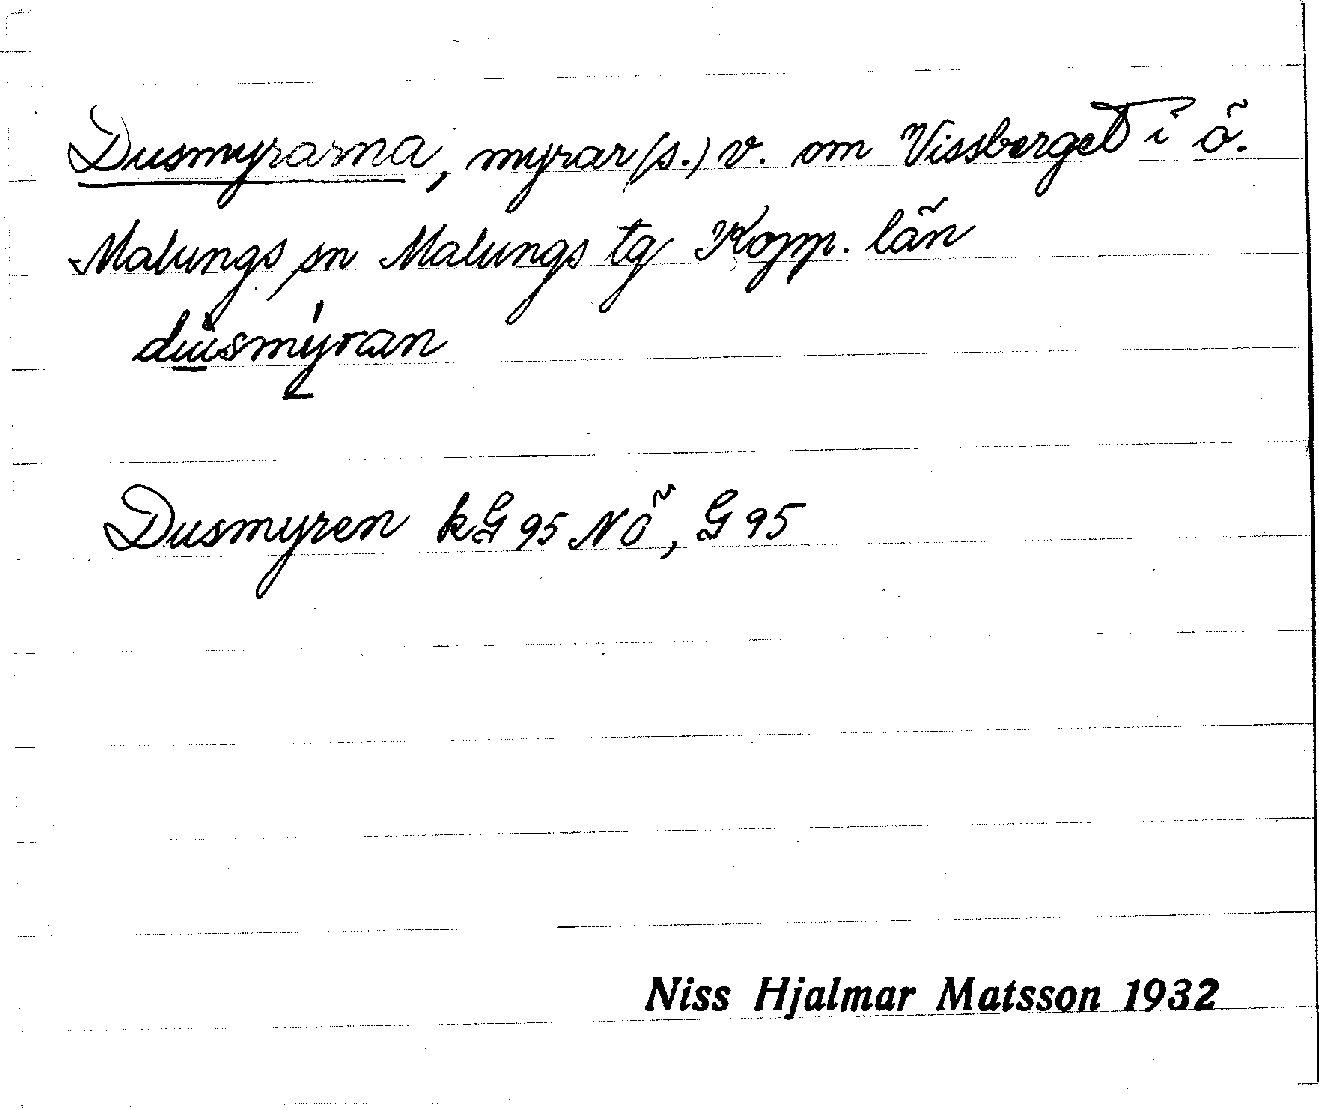 Dusmyrarna, myrar (s.) v. om Vissberget i ö.
Malungs sn Malungs tg Kopp. län
dusmyran
Dusmyren kG 95 Nö, G 95
Niss Hjalmar Matsson 1932